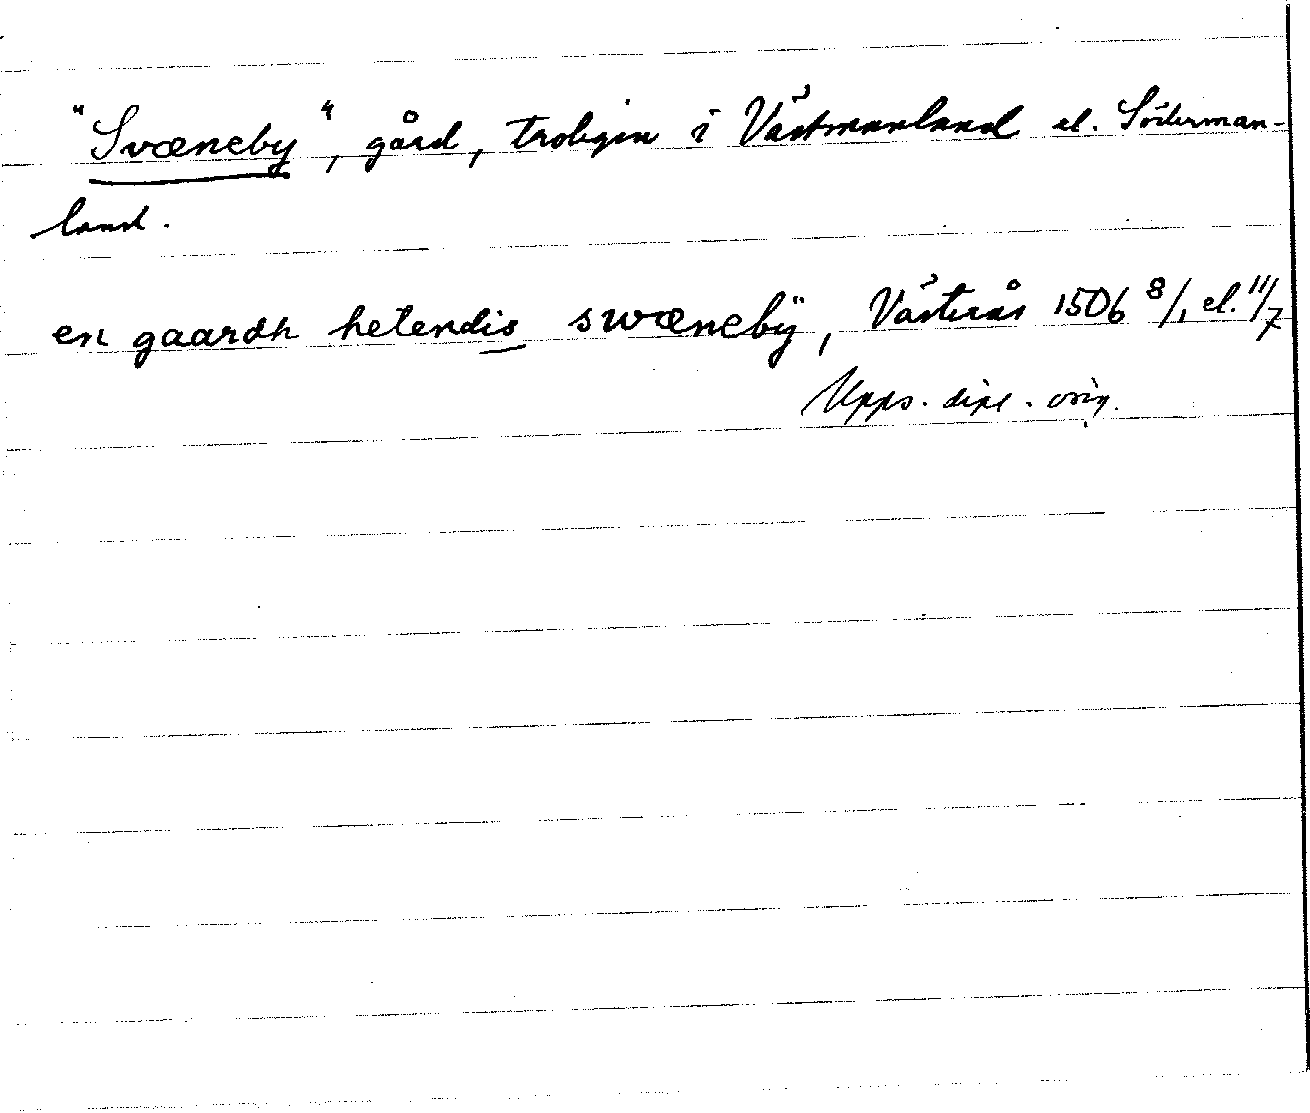 "Svæneby", gård, troligen i Västmanland el. Söderman-
land.
en gaardh hetendis swænebÿ, Västerås 1506 8/1 el. 11/7
Upps. dipl. orig.